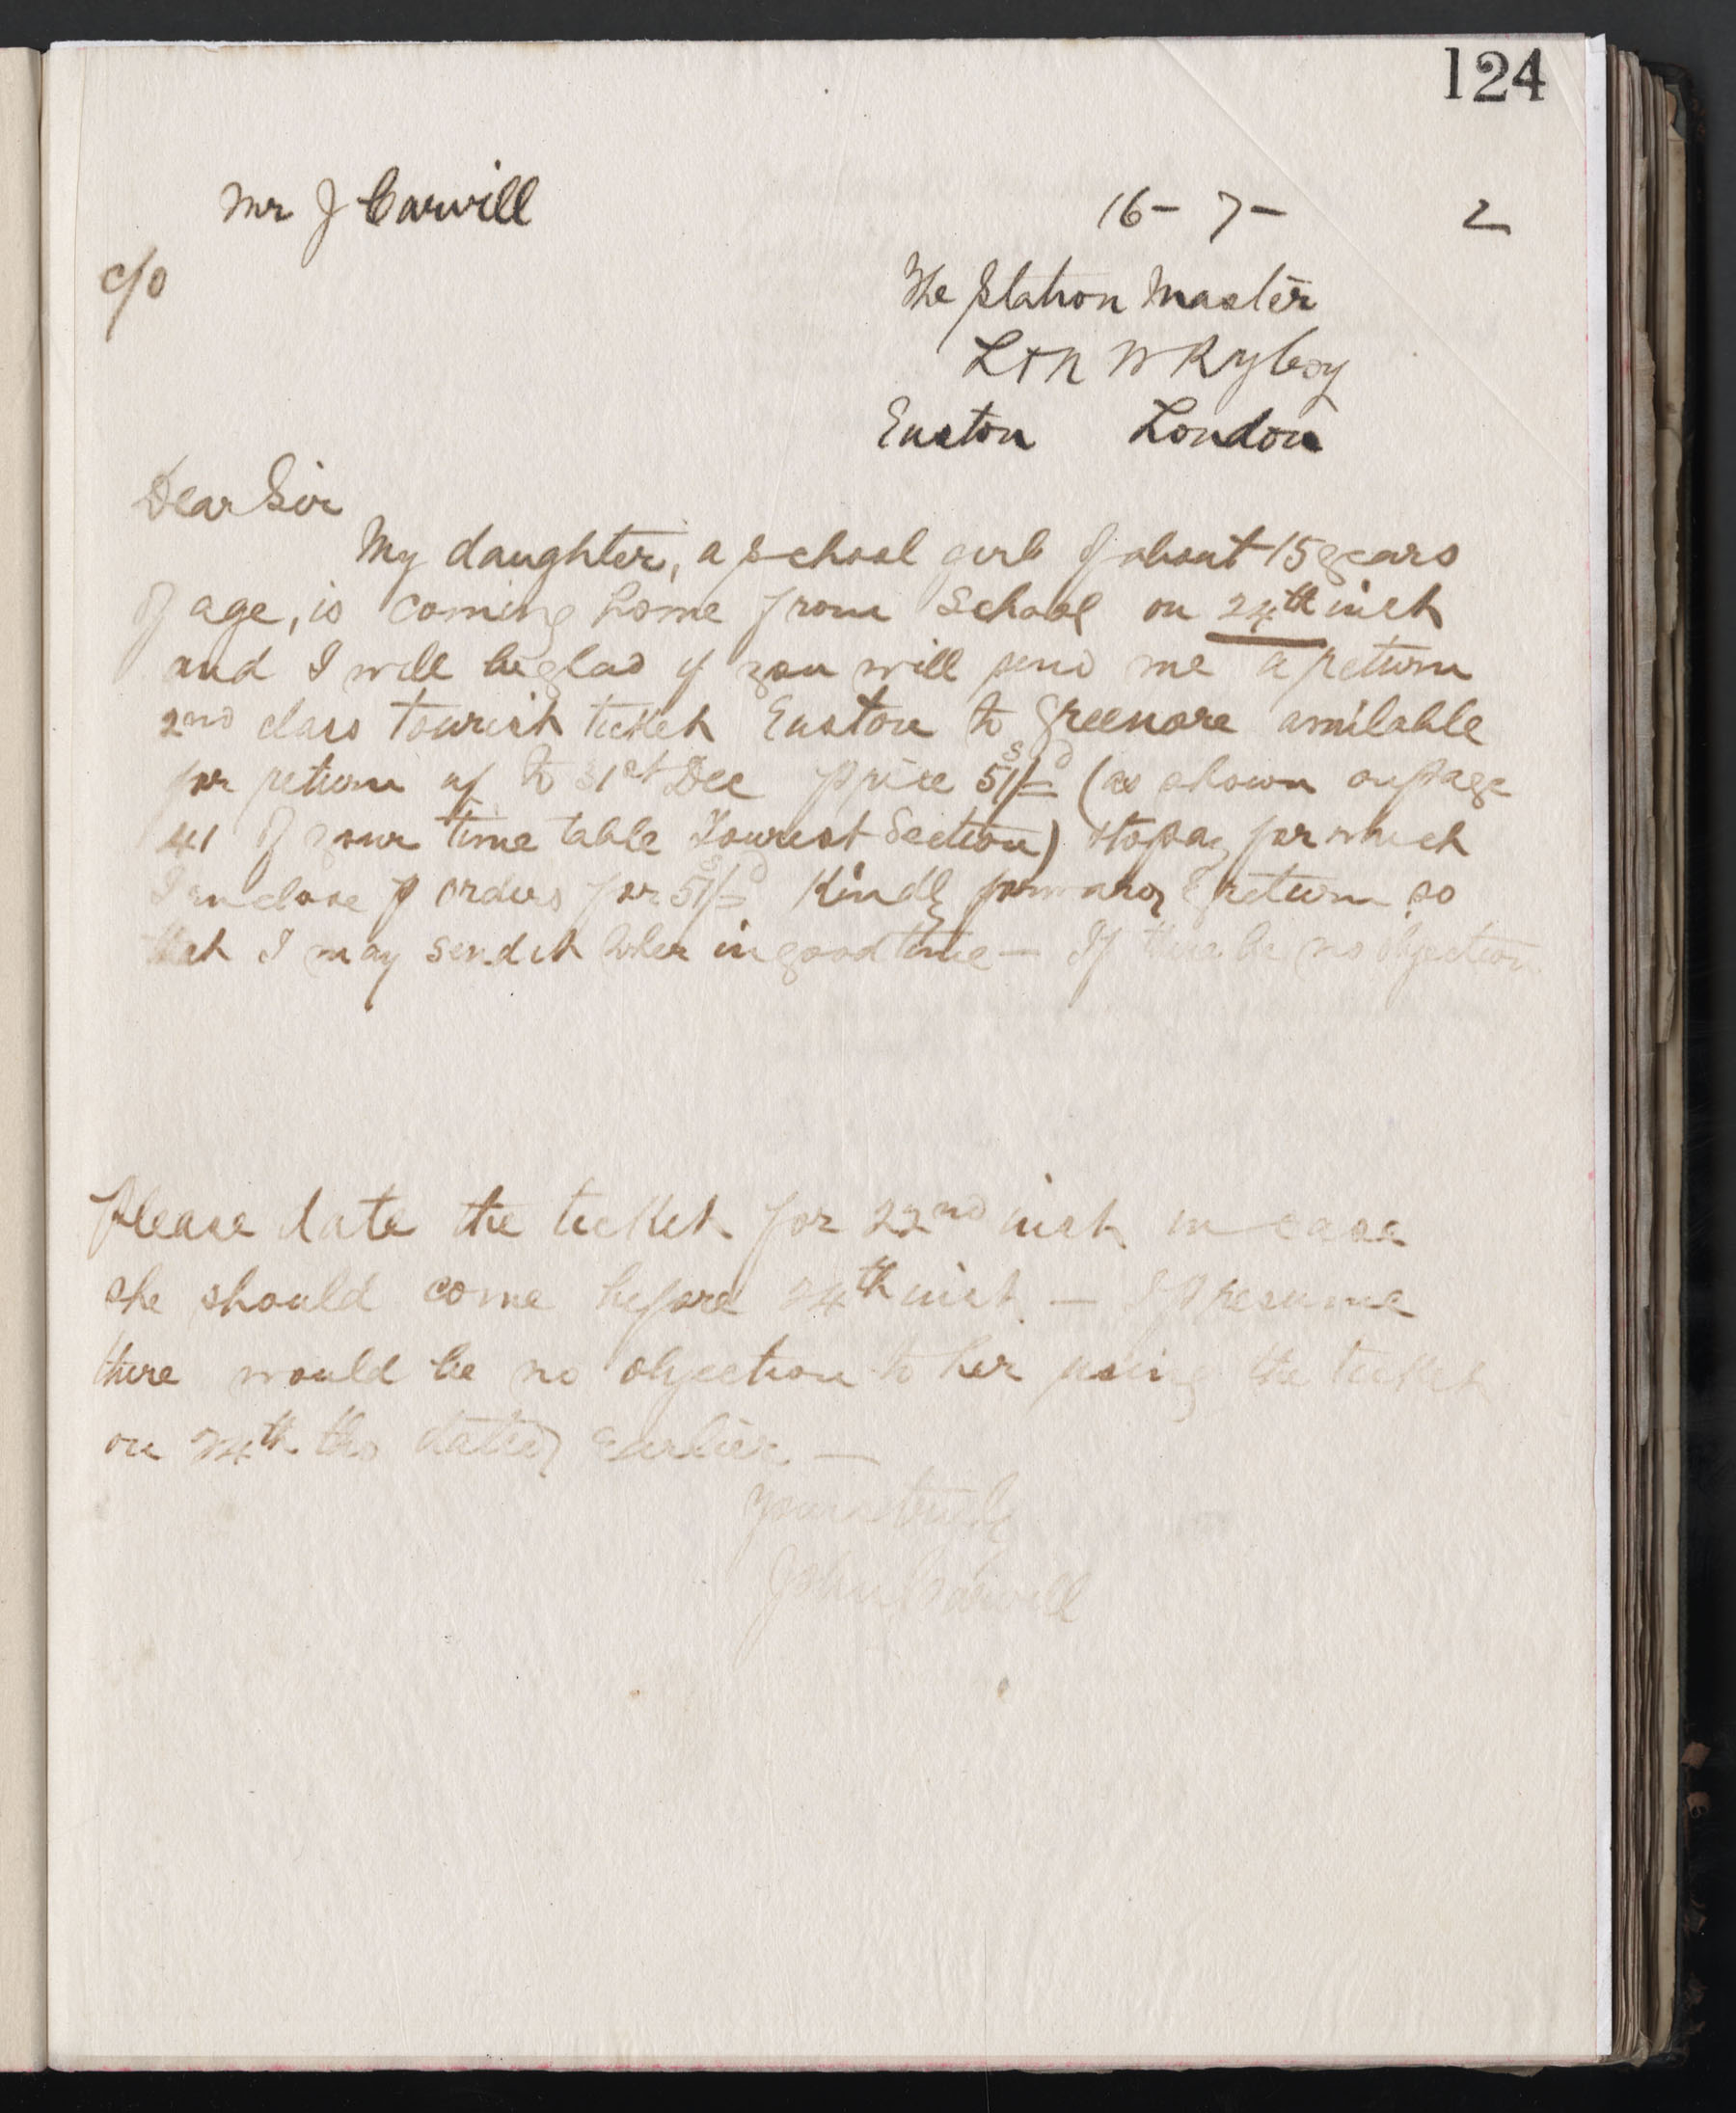 124
Mr J Carvill 16 - 7 - 2
c/o The Station Master
L & N W Ry Coy
Euston London
Dear Sir
My daughter, a school girl of about 15 years
of age, is coming home from School on 24th inst
and I will be glad if you will send me a return
2nd class tourist ticket Euston to Greenore available
for return up to 31st Dec price 51/= (as shown on page
41 of your time table Tourist Section) to pay for which
I enclose p orders for 51/= Kindly forward return so
that I may send it to her in good time — If there be no objection
Please date the ticket for 22nd inst in case
she should come before 24th inst. — I presume
there would be no objection to her using the ticket
on 24th tho dated earlier. —
Yours truly
John Carvill